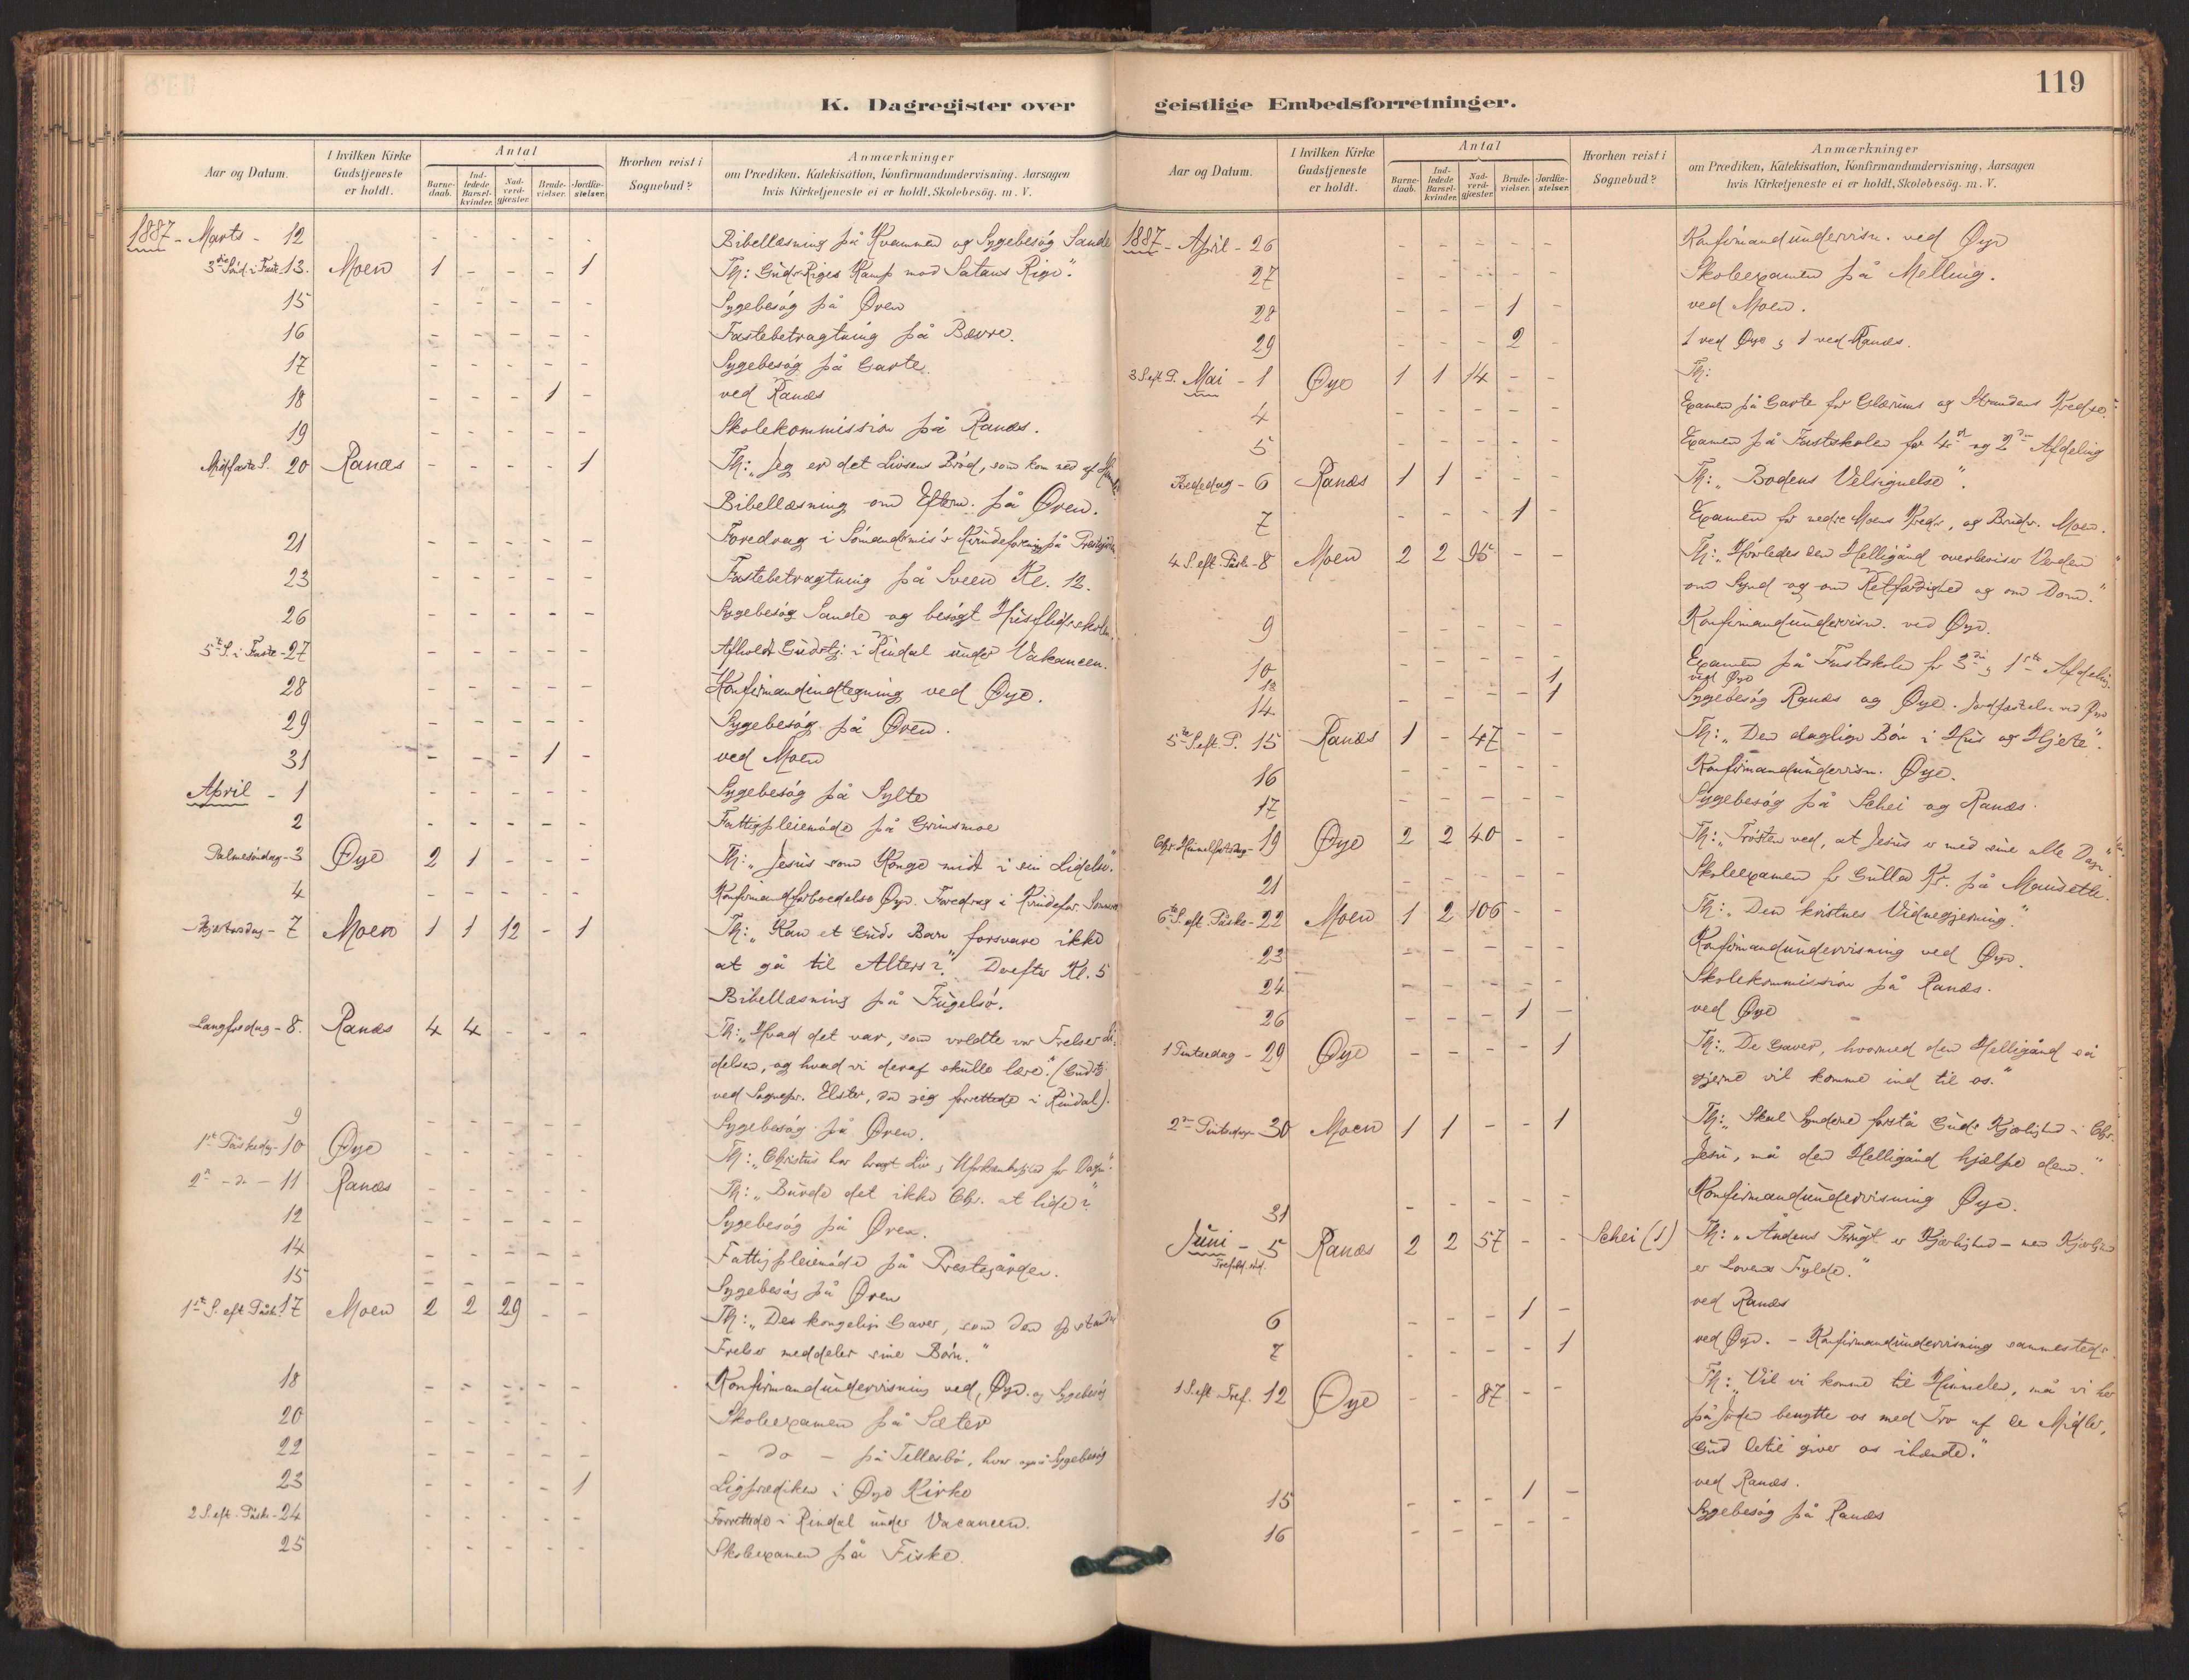 K. Dagregister over
Aar og Datum. I hvilken Kirke Gudstjeneste er holdt. Antal Barne-daab. Ind-ledede Barsel-kvinder. Nad-verd-gjæster. Brude-vielser. Jordfæ-stelser. Hvorhen reist i Sognebud? Anmærkninger om Prædiken, Katekisation, Konfirmandundervisning, Aarsagen hvis Kirketjeneste ei er holdt, Skolebesög. m. V.
1887 - Marts - 12 - - - - - Bibellæsning på Kvammen og Sygebesøg Sande
3die Sød. i Faste 13. Moen 1 - - - 1 Th: Guds Riges Kamp mod Satans Rige."
15 - - - - - Sygebesøg på Øren
16 - - - - - Fastebetragtning på Bævre.
17 - - - - - Sygebesøg på Garte.
18 - - - 1 - ved Ranæs
19 - - - - - Skolekommission på Ranæs.
Midfaste S. 20 Ranæs - - - - 1 Th: "Jeg er det Livsens Brød, som kom ned af
Bibellæsning om Efterm. på Øren.
21 - - - - - Foredrag i Sømandsmis's Kvindeforening på
23 - - - - - Fastebetragtning på Sveen Kl. 12.
26 - - - - - Sygebesøg Sande og besøgt Husflidsskolen.
5te S. i Faste - 27 - - - - - Afholdt Gudstj: i Rindal under Vakancen.
28 - - - - - Konfirmandindtegning ved Øye.
29 - - - - - Sygebesøg på Øren.
31 - - - 1 - ved Moen
April - 1 - - - - - Sygebesøg på Sylte
2 - - - - - Fattigpleiemøde på Grimsmoe
Palmesøndag - 3 Øye 2 1 - - - Th: "Jesus som Konge midt i sin Lidelse."
4 - - - - - Konfirmandforberedelse Øye. Foredrag i Kvindefor.
Skjærtorsdag - 7 Moen 1 1 12 - 1 Th: "Kan et Guds Barn forsvare ikke
at gå til Alters?" Derefter Kl. 5
Bibellæsning på Fugelsø.
Langfredag - 8. Ranæs 4 4 - - - Th: "Hvad det var, som voldte vor Frelser Li-
delsen, og hvad vi deraf skulle lære." (Gudstj
ved Sognepr. Elster, da jeg forrettede i Rindal).
9 - - - - - Sygebesøg på Øren.
1ste Påskedag - 10 Øye Th: "Christus har bragt Liv & Uforkrænkelighed for Dagen".
2n - do - 11 Ranæs - - - - - Th: "Burde det ikke Chr. at lide?"
12 - - - - - Sygebesøg på Øren.
14 - - - - - Fattigpleiemøde på Prestegården.
15 - - - - - Sygebesøg på Øren
1ste S. eft Påske 17 Moen 2 2 29 - - Th: "De kongelige Gaver, som den
Frelser meddeler sine Børn."
18 - - - - - Konfirmandundervisning ved Øye. og Sygebesøg
20 - - - - - Skoleexamen på Sæter
22 - - - - - - do - på Tellesbø, hvor også Sygebesøg
23 - - - - 1 Ligprædiken i Øye Kirke
2 S. eft. Påske - 24 - - - - - Forrettede i Rindal under Vacancen.
25 - - - - - Skoleexamen på Fiske.
119
geistlige Embedsforretninger.
Aar og Datum. I hvilken Kirke Gudstjeneste er holdt. Antal Barne-daab. Ind-ledede Barsel-kvinder. Nad-verd-gjæster. Brude-vielser. Jordfæ-stelser. Hvorhen reist i Sognebud? Anmærkninger om Prædiken, Katekisation, Konfirmandundervisning, Aarsagen hvis Kirketjeneste ei er holdt, Skolebesög. m. V.
1887 - April - 26 - - - - - Konfirmandundervisn. ved Øye
27 - - - - - Skoleexamen på Melling.
28 - - - 1 - ved Moen.
29 - - - 2 - 1 ved Øye & 1 ved Ranæs.
3 S. eft P. Mai - 1 Øye 1 1 14 - - Th:
4 - - - - - Examen på Garte for Glærums og Strandens Kredse.
5 - - - - - Examen på Fastskolen for 4de og 2den Afdeling
Bededag - 6 Ranæs 1 1 - - - Th: "Bodens Velsignelse".
7 - - - 1 - Examen for nedre Moens Kreds, og Brudv. Moen.
4 S. eft. Påske - 8 Moen 2 2 96 - - Th: "Hvorledes den Helligånd overbeviser Verden
om Synd og om Retfærdighed og om Dom."
9 - - - - - Konfirmandundervisn. ved Øye.
10 - - - - - Examen på Fastskolen for 3die & 1ste Afdeling.
13 1 ved Øye
14 - - - - 1 Sygebesøg Ranæs og Øye. Jordfæstelse ved Øye
5te S. eft. P. 15 Ranæs 1 - 47 - - Th: "Den daglige Bøn i Hus og Hjerte".
16 - - - - - Konfirmandundervisn. Øye.
17 - - - - - Sygebesøg på Schei og Ranæs.
Chr. Himmelfartsdag - 19 Øye 2 2 40 - - Th: "Trøsten ved, at Jesus er med sine alle Dage."
21 - - - - - Skoleexamen for Gulla Kr. på Mauseth.
6te S. eft Påske - 22 Moen 1 2 106 - - Th: "Den kristnes Vidnegjerning."
23 - - - - - Konfirmandundervisning ved Øye.
24 - - - - - Skolekommission på Ranæs.
26 - - - 1 - ved Øye
1 Pintsedag - 29 Øye - - - - 1 Th: "De Gaver, hvormed den Helligånd så
gjerne vil komme ind til os."
2n Pintsedag - 30 Moen 1 1 - - 1 Th: "Skal Synderne forstå Guds Kjærlighed i Chr.
Jesu, må den Helligånd hjælpe dem."
31 - - - - - Konfirmandundervisning Øye.
Juni - 5 Ranæs 2 2 57 - - Schei (1) Th: "Åndens Frugt er Kjærlighed - men Kjærlighed
Trefold. Sød. er Lovens Fylde."
6 - - - 1 - ved Ranæs
7 - - - - 1 ved Øye. - Konfirmandundervisning sammesteds.
1 S. eft Tref. 12 Øye - - 87 - - Th: "Vil vi komme til Himmelen, må vi her
på Jorden benytte os med Tro af de Midler,
Gud dertil giver os ihænde."
15 - - - 1 - ved Ranæs.
16 - - - - - Sygebesøg på Ranæs